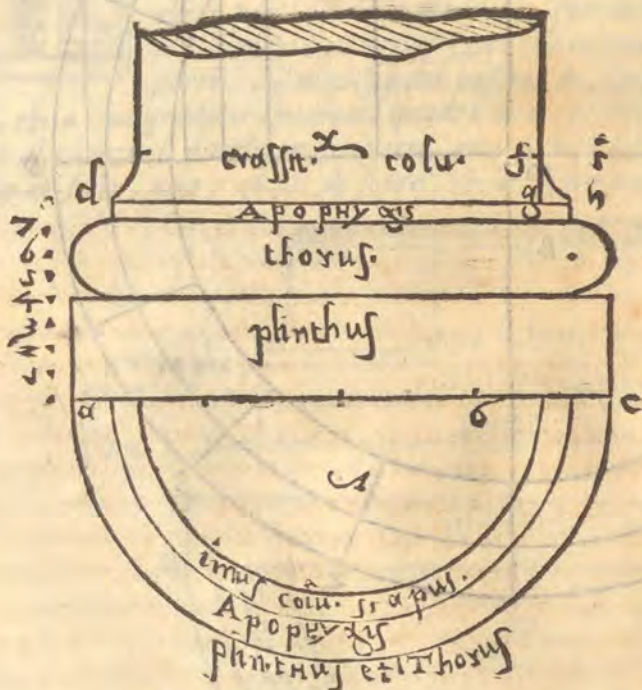 craſſit. x colu. f
d g h
Apophygis
thoruſ.
plinthuſ
a c
imuſ colū. scapus.
Apophygiſ
plinthuſ et Thoruſ